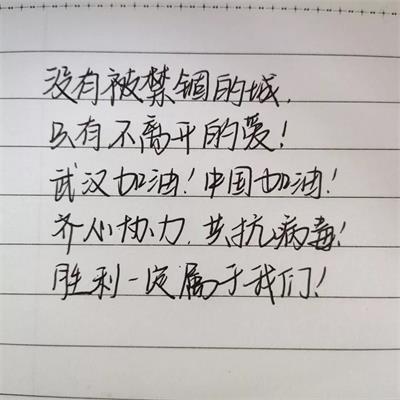 没有被禁锢的城，
只有不离开的爱！
武汉加油！中国加油！
齐心协力，共抗病毒！
胜利一定属于我们！